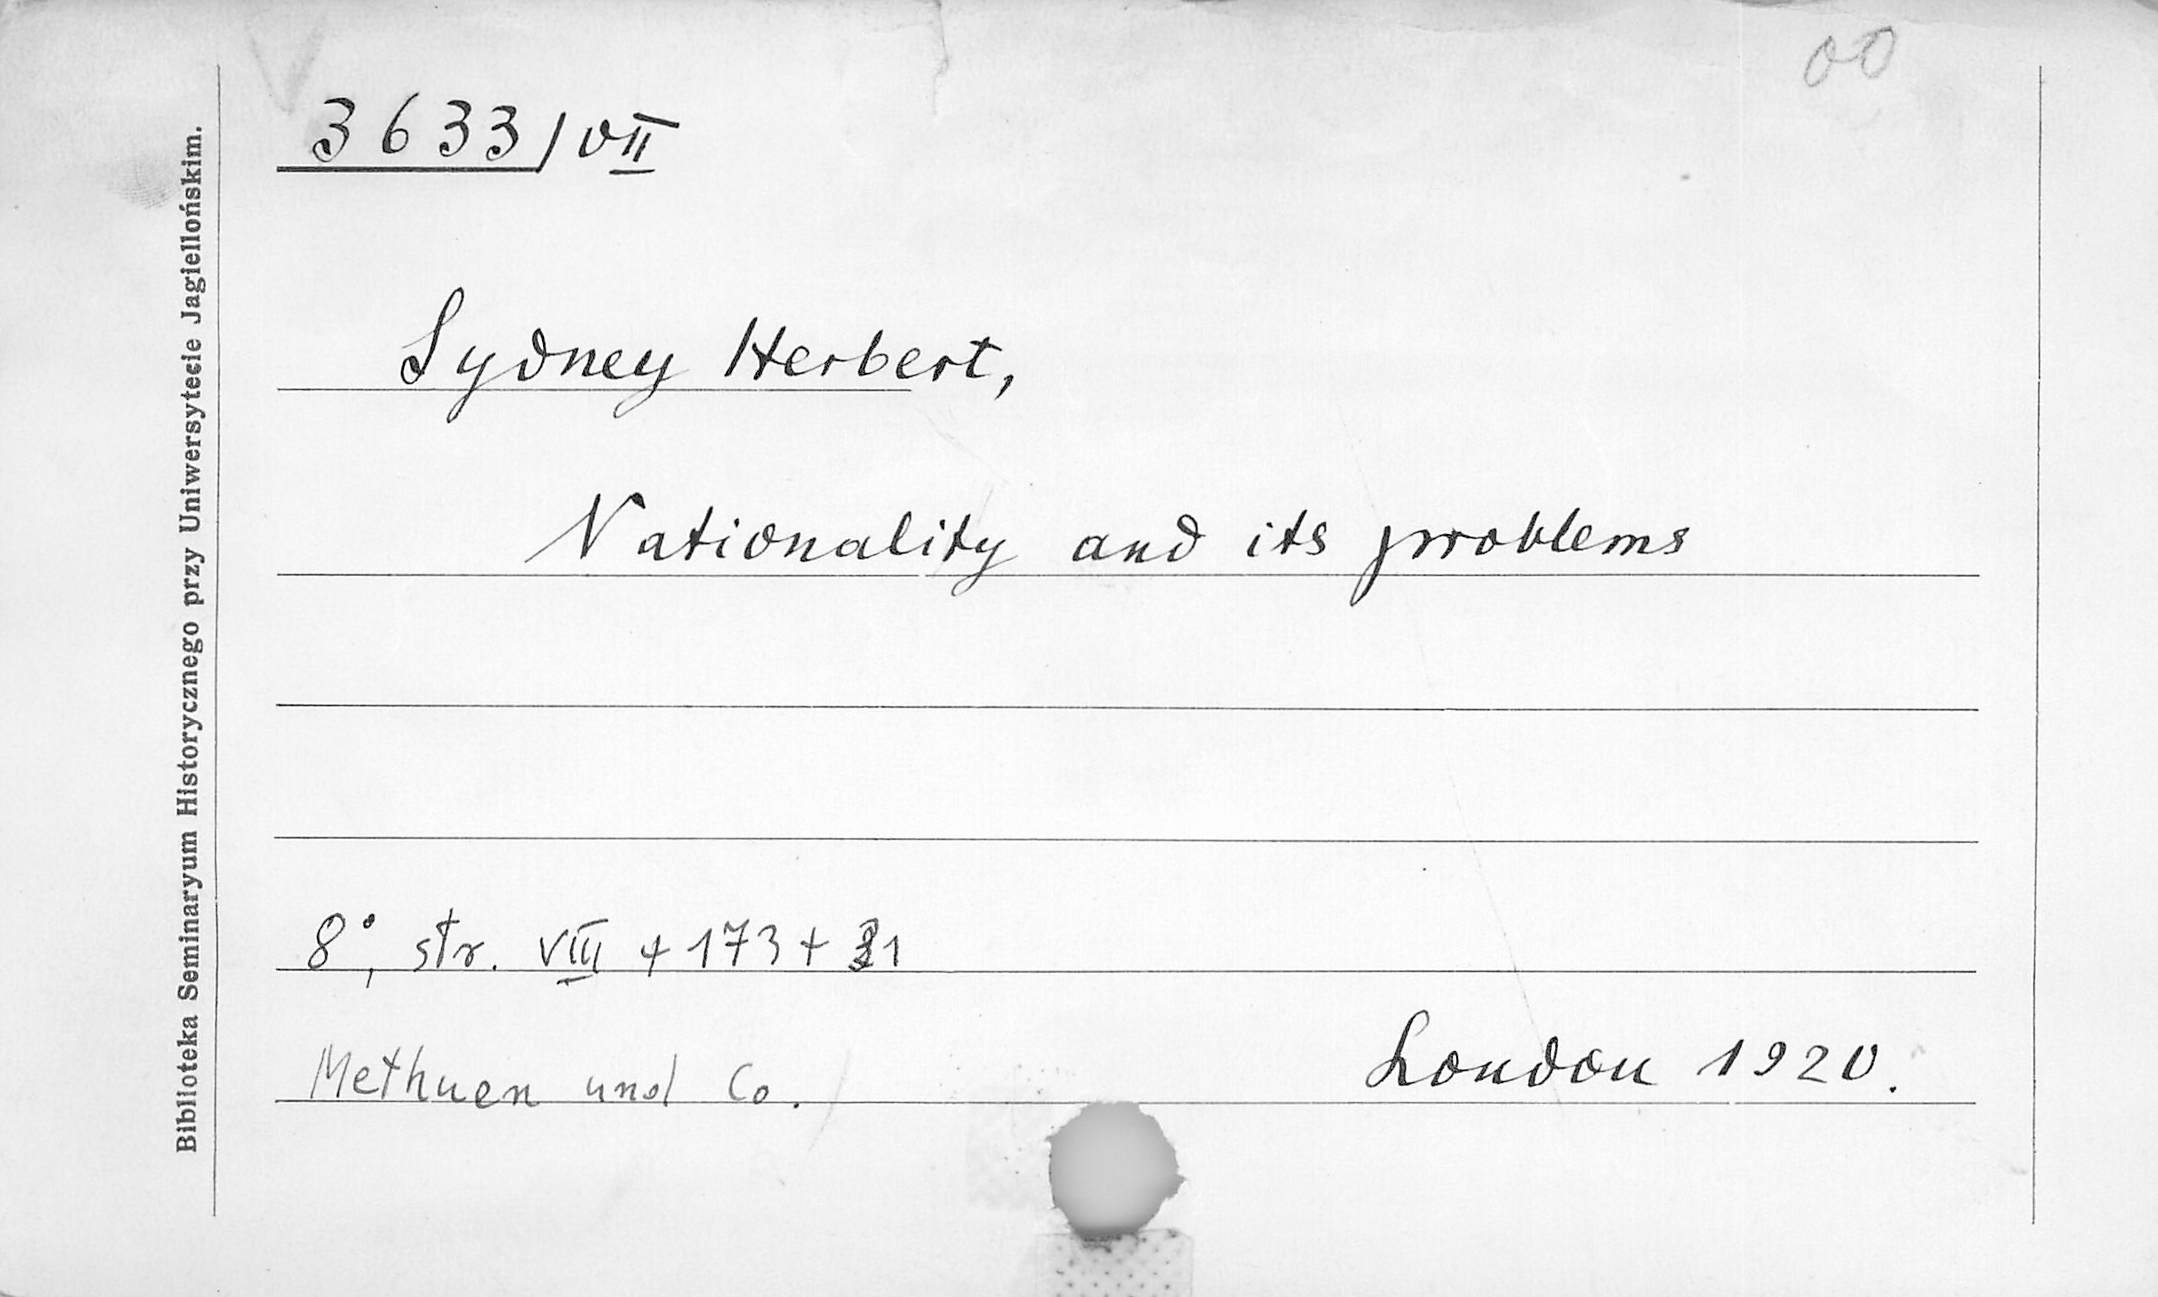 00
3633/VII
Sydney Herbert,
Nationality and its problems
8°, str. VIII + 173 + 31
Methuen und Co.
London 1920.
Biblioteka Seminaryum Historycznego przy Uniwersytecie Jagiellońskim.